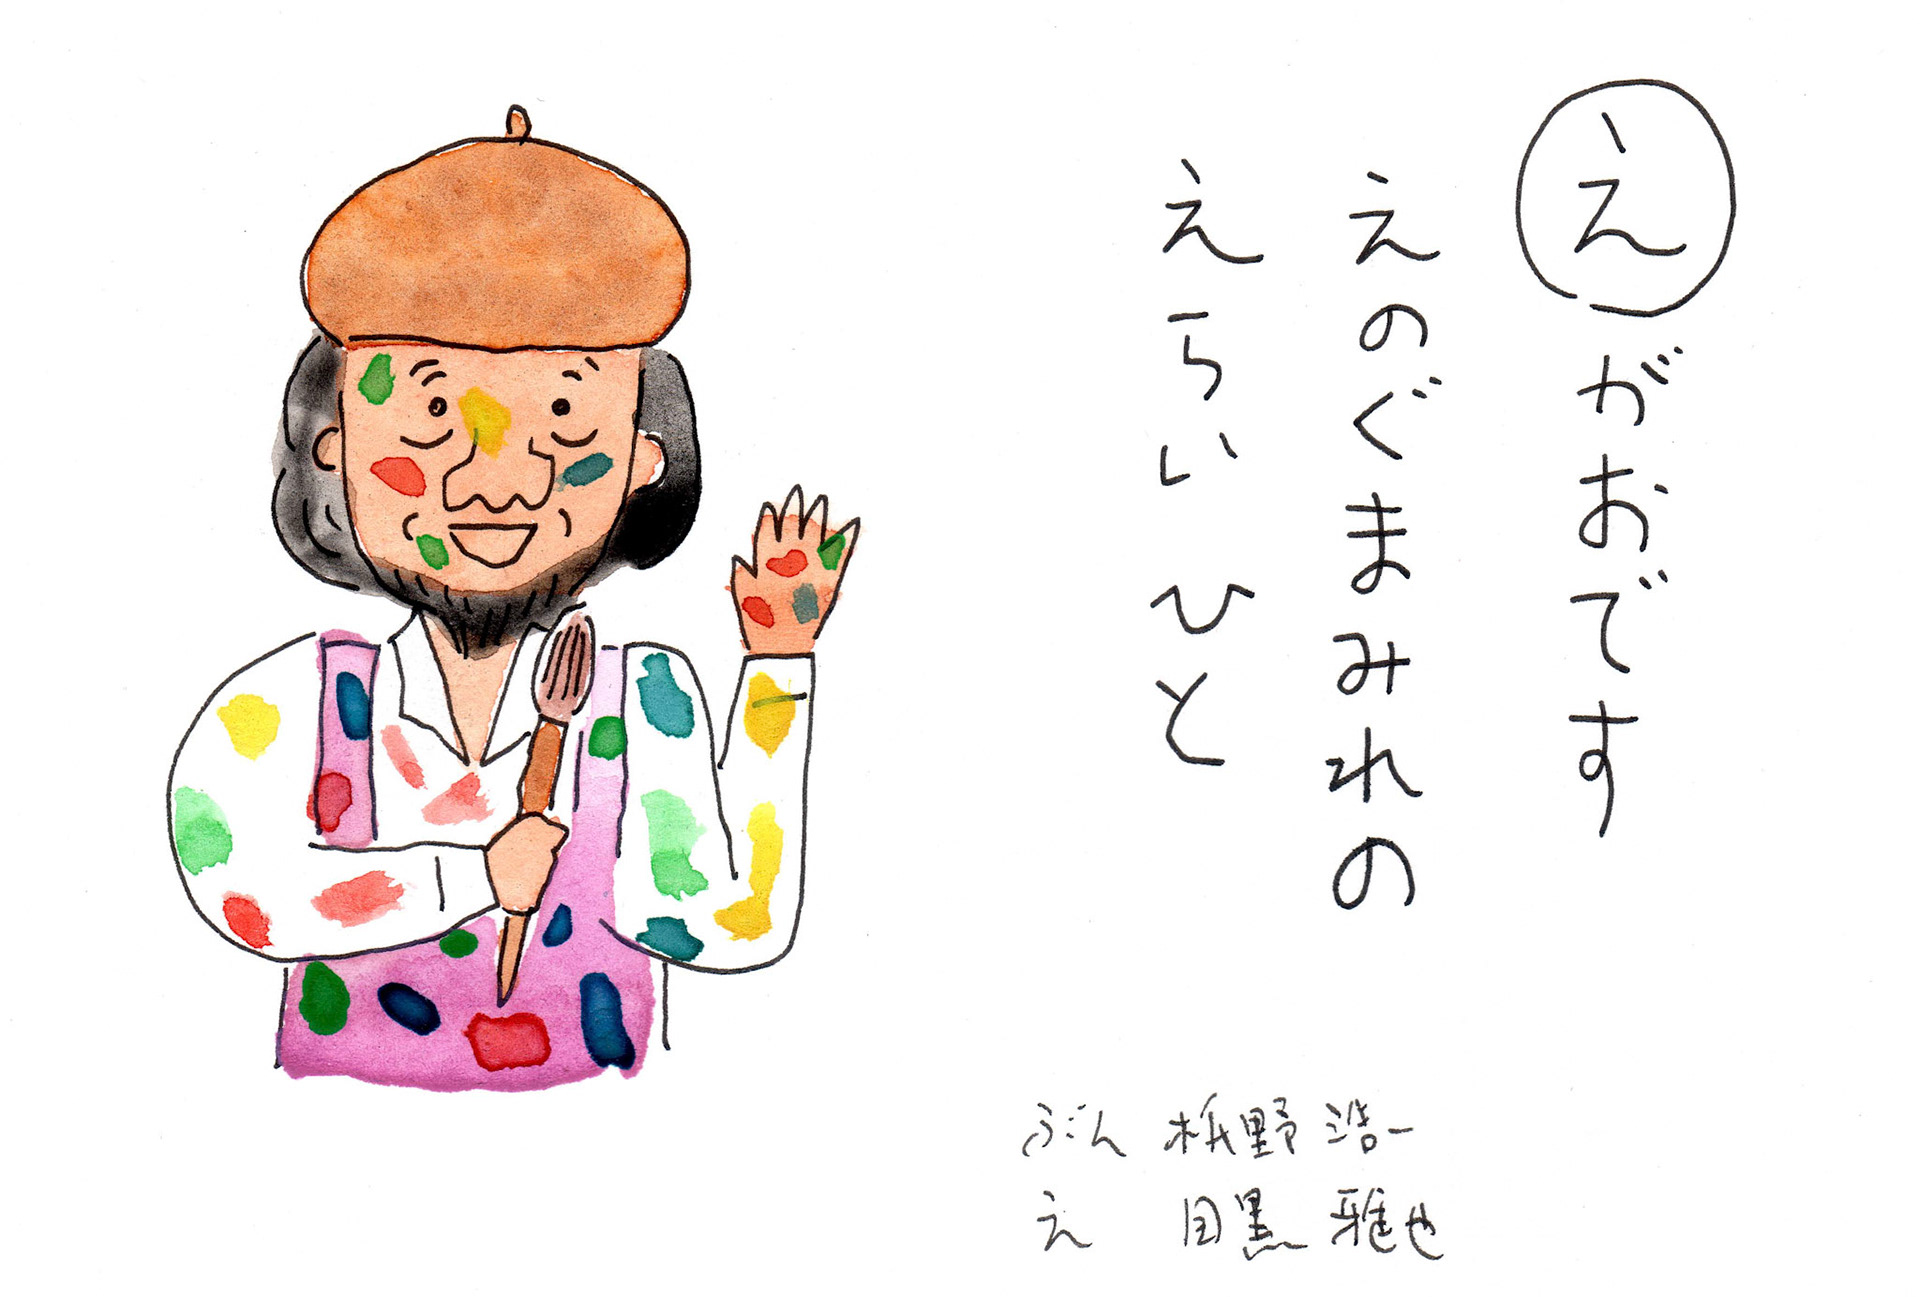 えがおです
えのぐまみれの
えらい ひと
ぶん 枡野 浩一
え 目黒 雅也